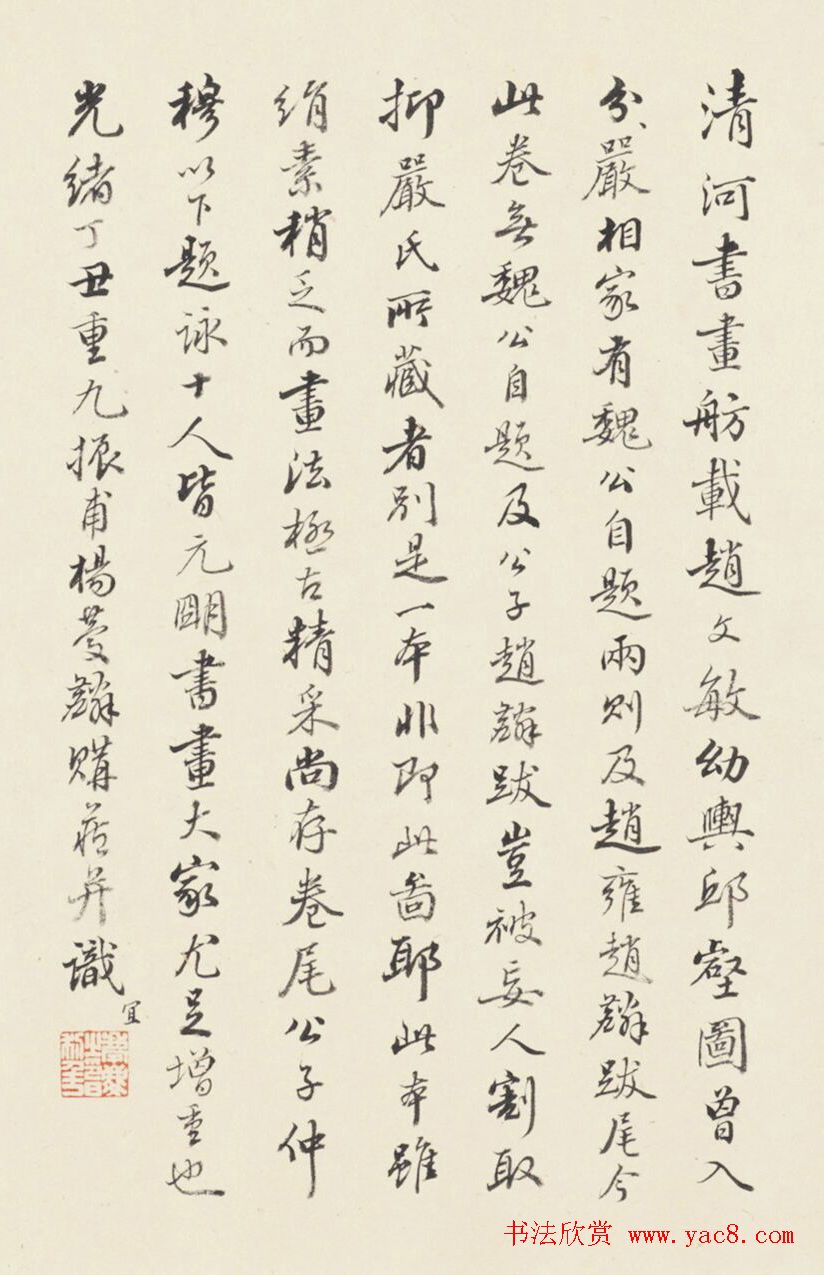 清河書畫舫載趙文敏幼輿邱壑圖曾入
分嚴相家有魏公自題兩則及趙雍趙麟跋尾今
此卷無魏公自題及公子趙麟跋豈被妄人割取
抑嚴氏所藏者別是一本非即此啚耶此本雖
絹素稍乏而畫法極古精采尚存卷尾公子仲
穆以下題詠十人皆元明書畫大家尤足增重也
光緒丁丑重九振甫楊慶麟購藏并識
宜
书法欣赏 www.yac8.com